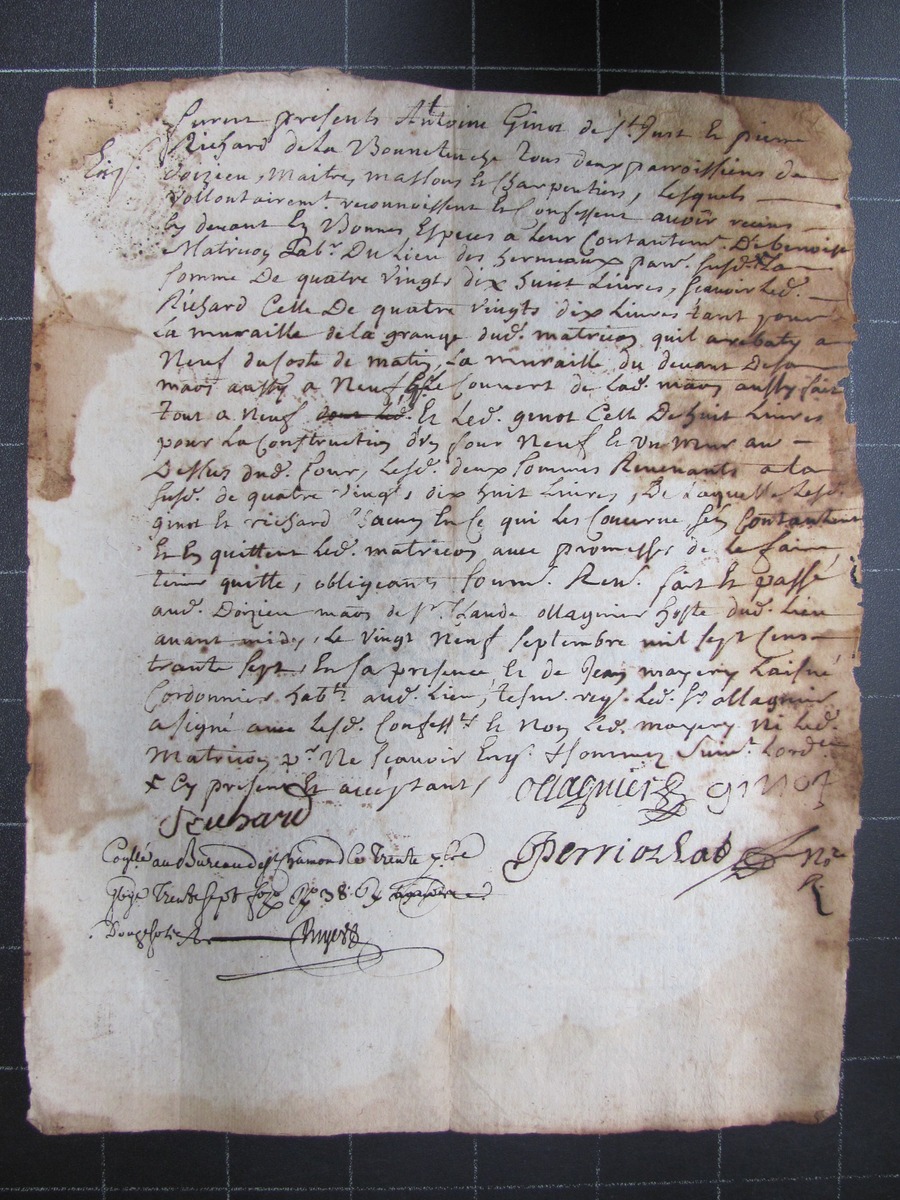 furent presents Antoine Ginot de St. Just Et pierre
Richard de la Bonnetinche tous deux parroissiens de
doizieu, Maitres massons Et Charpentiers, Lesquels
Vollontairemt. reconnoissent Et Confessent avoir receus
Cy devant En Bonnes Especes a Leur Contantemt. De benoist
Matricon Labr. Du Lieu des hermeaux parr. susd. x La
somme De quatre vingts dix huit Livres, scavoir Led.
Richard Celle De quatre vingts dix Livres tant pour
La muraille de la grange dud. matricon quil a rebaty a
Neuf du Coste de matin, La muraille du devant De sa
maon aussy a Neuf, Et le Couvert de Lad. maon aussy fait
tout a Neuf Et Led. ginot Celle De huit Livres
pour La Construction d'un four Neuf Et un mur au
Dessus dud. four, Lesd. deux sommes Revenants a la
susd. de quatre vingts dix huit Livres, De Laquelle Lesd.
ginot Et richard Chacun En Ce qui Les Concerne sen Contantent
Et En quittent Led. matricon avec promesse de le faire
tenir quitte, obligeants soumt. Ren. fait Et passé
aud. Doizieu maon de Sr. Claude ollagnier hoste dud. Lieu
avant midy, Le vingt Neuf septembre mil sept Cens
trante sept, En sa presence Et de Jean mayery Laisné
Cordonnier habt. aud. Lieu, tesm. req. Led. Sr. ollagnier
a signé avec Lesd. Confessts. Et Non Led. mayery Ni Led.
Matricon pr. Ne scavoir Enq. Et sommez suivt. Lordce.
x Cy present Et acceptant / ollagnier ginot
Richard
Conllé au Bureau de St Chamond Ce Trente 7bre
Trente sept fo. 38
Douze sols
Perriochad Nore.
R